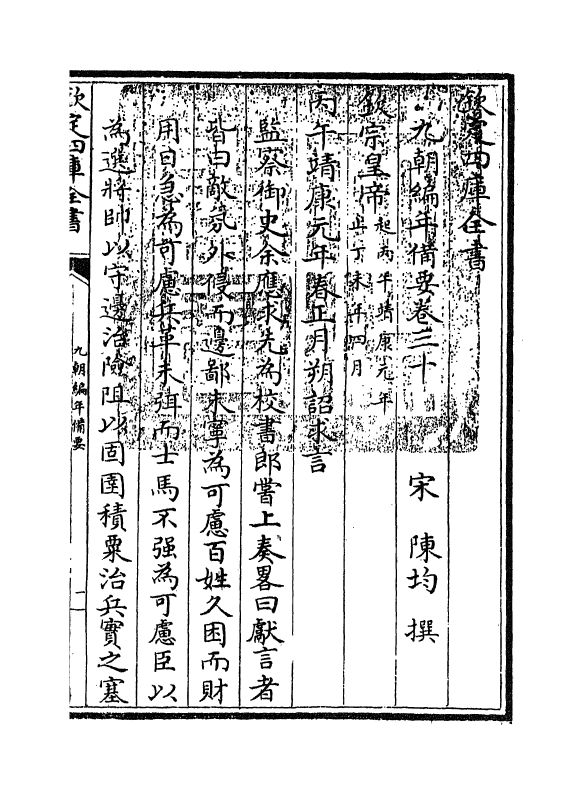 欽定四庫全書
九朝編年備要卷三十
宋 陳均 撰
欽宗皇帝 起丙午靖康元年
止丁未年四月
丙午靖康元年春正月朔詔求言
監察御史余應求先為校書郎嘗上奏畧曰獻言者
皆曰敵氛外侵而邊鄙未寧為可慮百姓久困而財
用日急為可慮兵革未弭而士馬不强為可慮臣以
為選將帥以守邊治險阻以固圉積粟治兵實之塞
欽定四庫全書
九朝編年備要
一